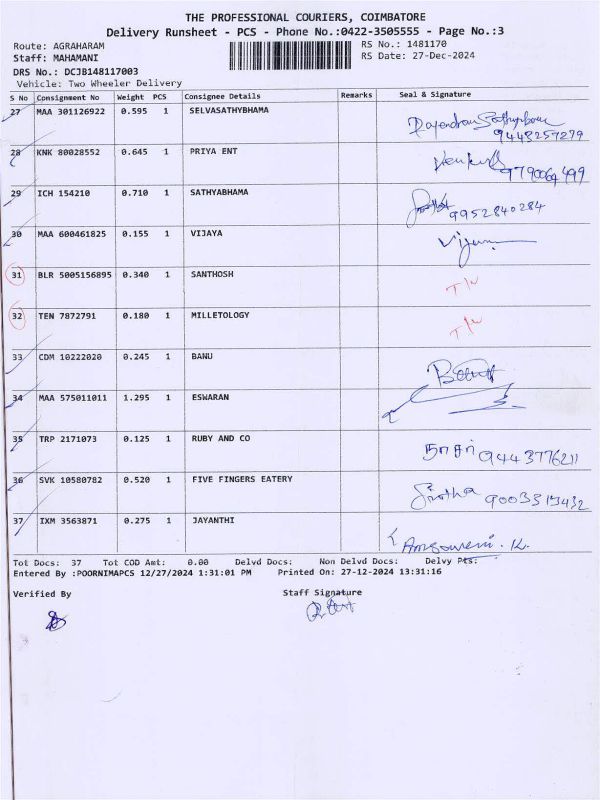 THE PROFESSIONAL COURIERS, COIMBATORE
Delivery Runsheet - PCS - Phone No.:0422-3505555 - Page No.:3
Route: AGRAHARAM RS No.: 1481170
Staff: MAHAMANI RS Date: 27-Dec-2024
DRS No.: DCJB148117003
Vehicle: Two Wheeler Delivery
S No Consignment No Weight PCS Consignee Details Remarks Seal & Signature
27 MAA 301126922 0.595 1 SELVASATHYBHAMA
9443257279
28 KNK 80028552 0.645 1 PRIYA ENT
9790064499
29 ICH 154210 0.710 1 SATHYABHAMA
9952840284
30 MAA 600461825 0.155 1 VIJAYA
31 BLR 5005156895 0.340 1 SANTHOSH
32 TEN 7872791 0.180 1 MILLETOLOGY
33 CDM 10222020 0.245 1 BANU
34 MAA 575011011 1.295 1 ESWARAN
35 TRP 2171073 0.125 1 RUBY AND CO
9443776211
36 SVK 10580782 0.520 1 FIVE FINGERS EATERY
37 IXM 3563871 0.275 1 JAYANTHI
Tot Docs: 37 Tot COD Amt: 0.00 Delvd Docs: Non Delvd Docs: Delvy Pts:
Entered By :POORNIMAPCS 12/27/2024 1:31:01 PM Printed On: 27-12-2024 13:31:16
Verified By Staff Signature